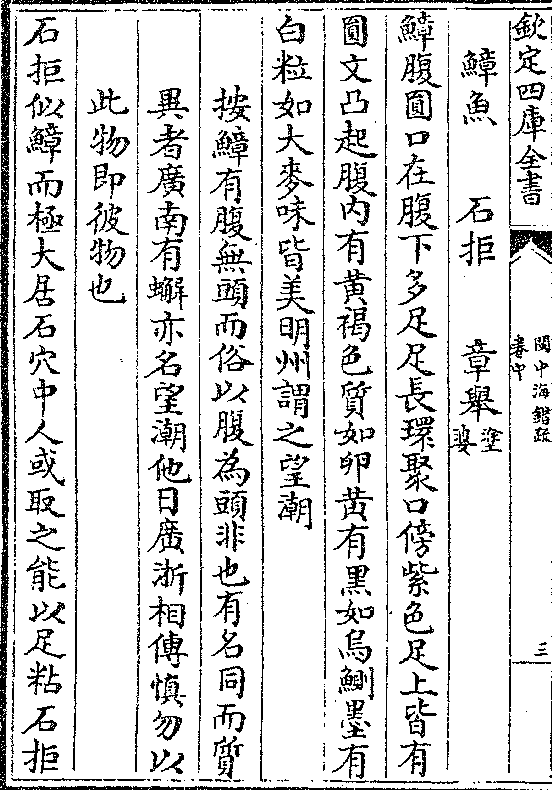 欽定四庫全書
閩中海錯疏
卷中
三
鱆魚 石拒 章舉 塗婆
鱆腹圓口在腹下多足足長環聚口傍紫色足上皆有
圓文凸起腹内有黄褐色質如卵黄有黒如烏鰂墨有
白粒如大麥味皆美明州謂之望潮
按鱆有腹無頭而俗以腹為頭非也有名同而質
異者廣南有蠏亦名望潮他日廣浙相傳慎勿以
此物即彼物也
石拒似鱆而極大居石穴中人或取之能以足粘石拒